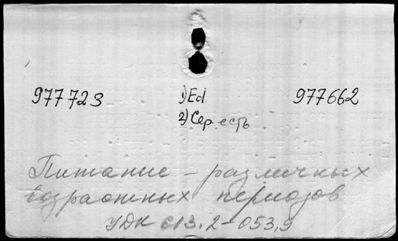 977723 1) Ed. 977662
2) Сер. есть
Питание - различных
возрастных периодов
УДК 613.2-053,9